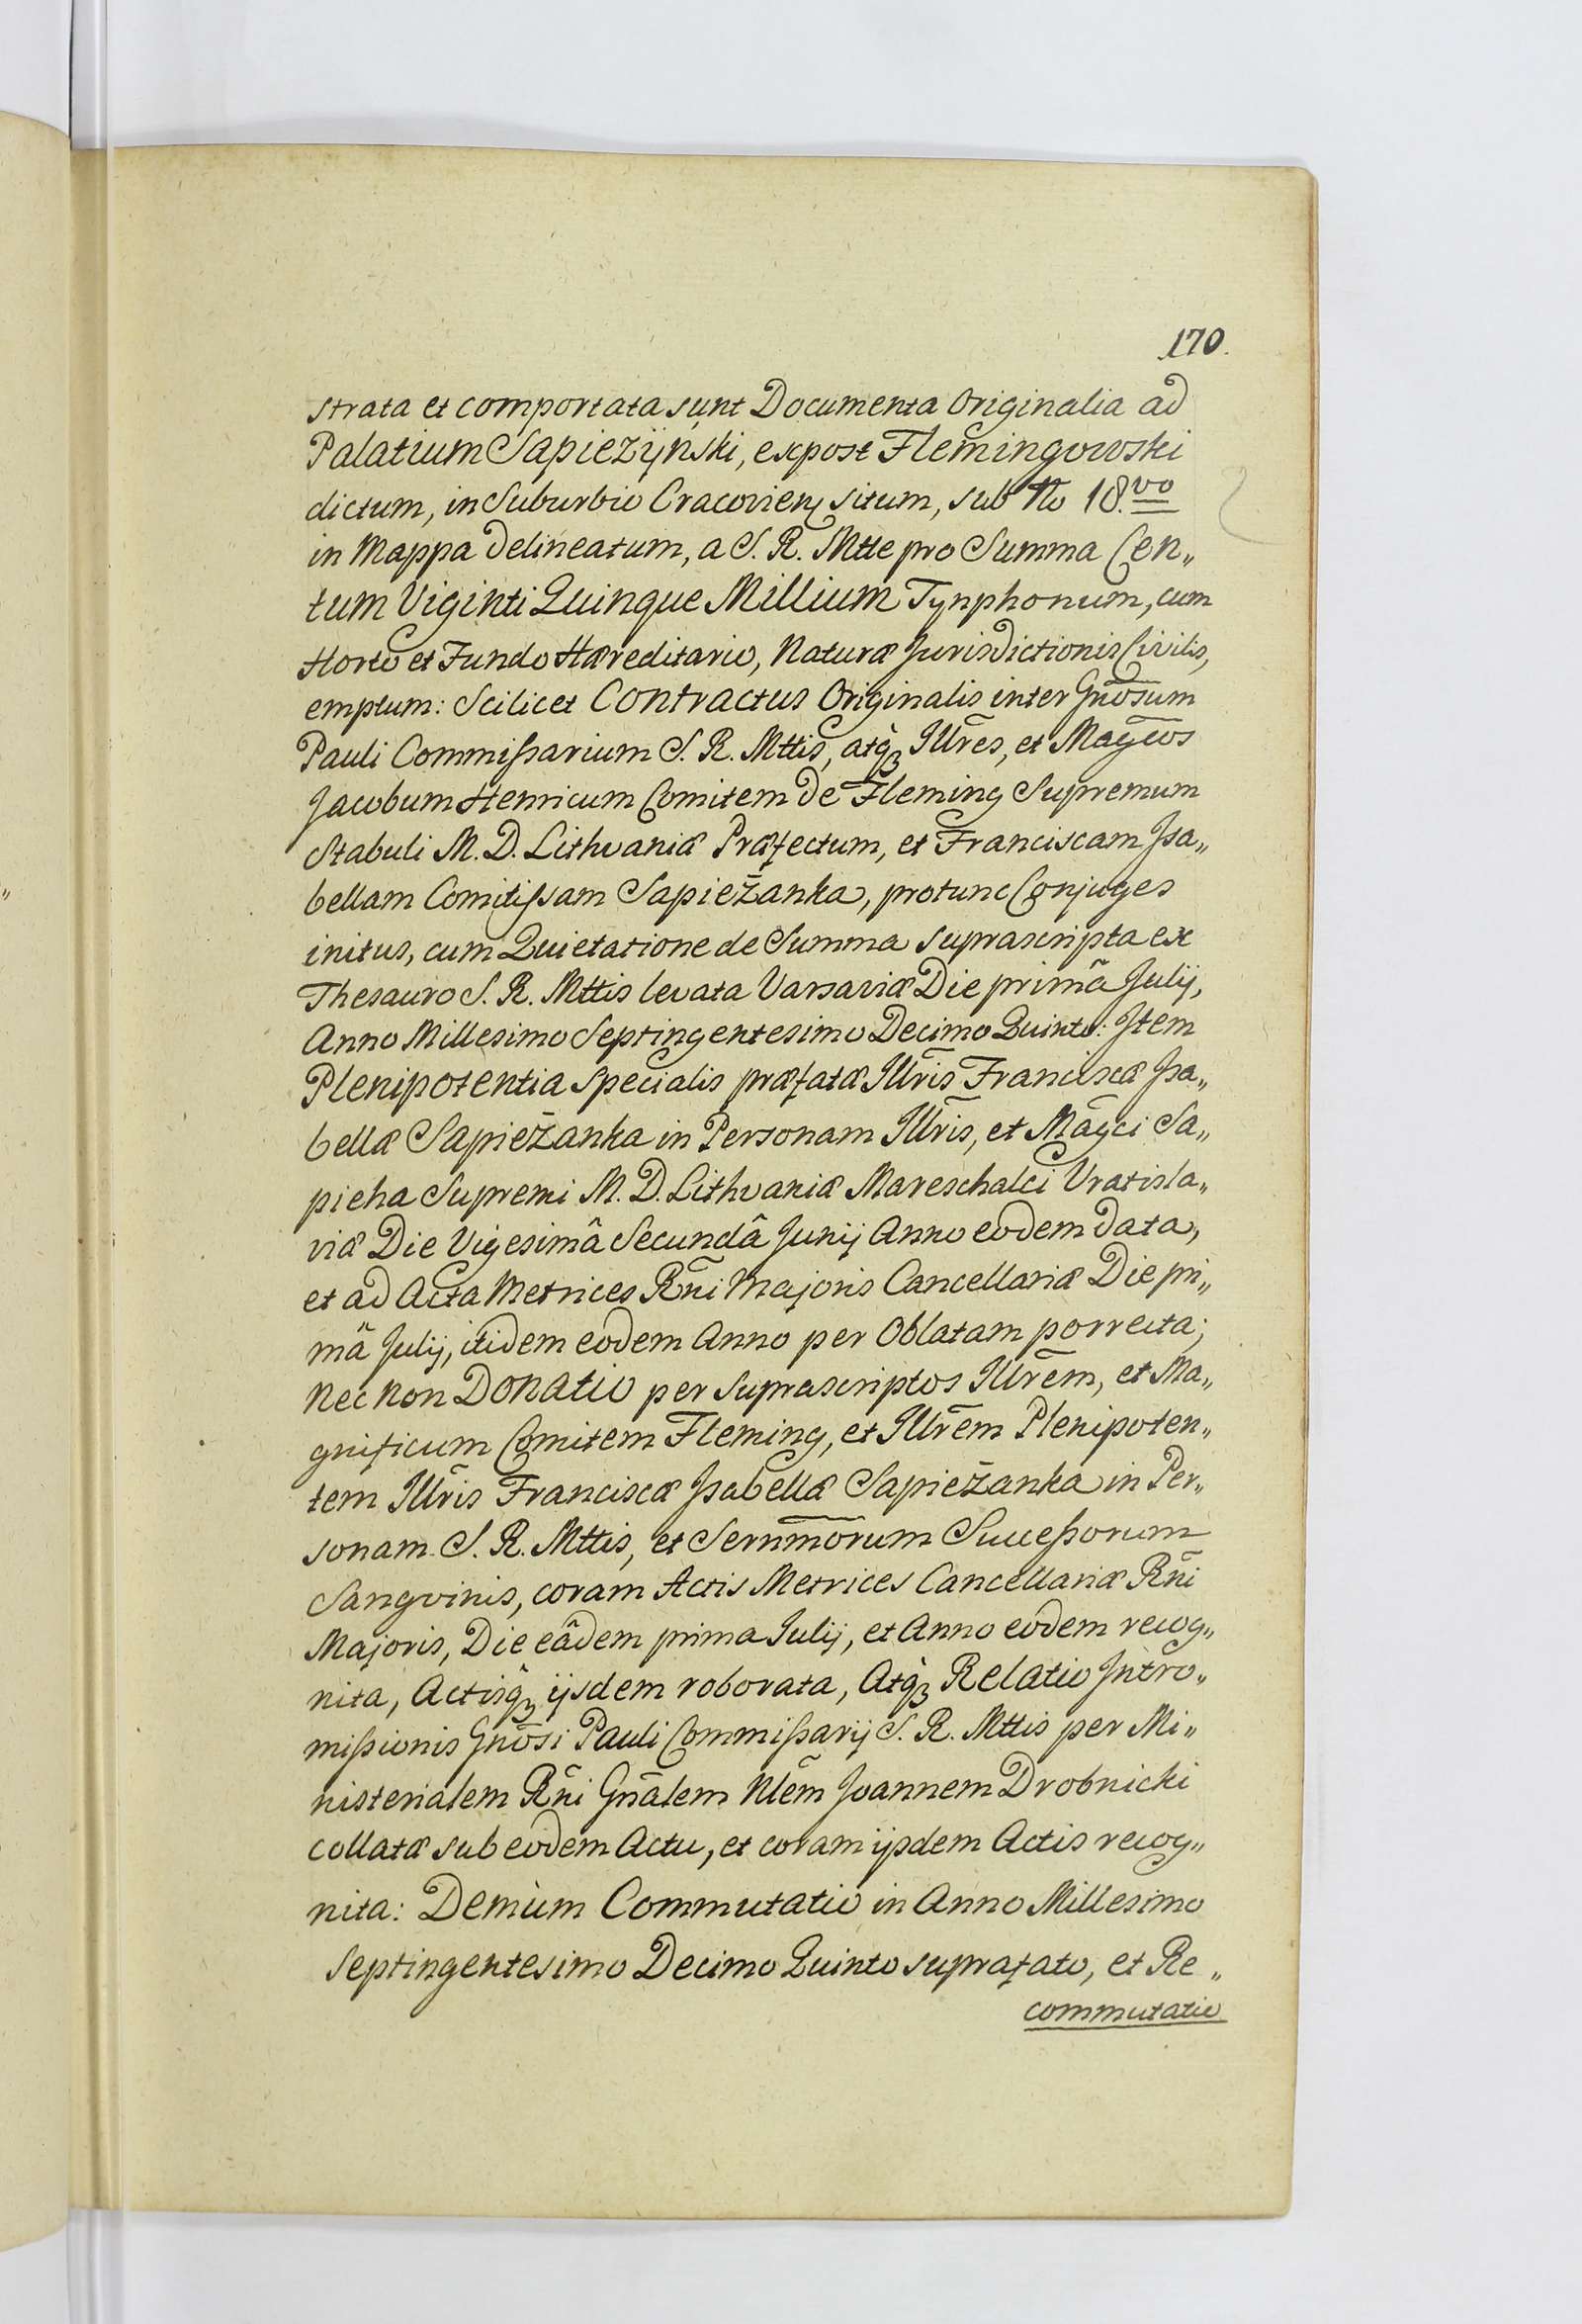 170.
strata et comportata sunt Documenta Originalia ad
Palatium Sapiezÿnski, expost Flemingowski
dictum, in Suburbio Cracovien situm, sub No 18.vo
in Mappa delineatum, a S. R. Mtte pro Summa Cen„
tum Viginti Quinque Millium Tynphonum, cum
Horto et Fundo Hæreditario, Naturæ Jurisdictionis Civilis,
emptum: Scilicet Contractus Originalis inter Gnõsum
Pauli Commissarium S. R. Mttis, atq̀ꝫ Illr̃es, et Magc̃os
Jacobum Henricum Comitem de Fleming Supremum
Stabuli M. D. Lithvaniæ Præfectum, et Franciscam Jsa„
bellam Comitissam Sapieżanka, protunc Conjuges
initus, cum Quietatione de Summa suprascripta ex
Thesauro S. R. Mttis levata Varsaviæ Die primâ Julij,
Anno Millesimo Septingentesimo Decimo Quinto: Jtem
Plenipotentia Specialis præfatæ Illr̃is Franciscæ Jsa„
bellæ Sapieżanka in Personam Illr̃is, et Mãgci Sa„
pieha Supremi M. D. Lithvaniæ Mareschalci Vratisla„
viæ Die Vigesimâ Secundâ Junij Anno eodem data,
et ad Acta Metrices Rñi Majoris Cancellariæ Die pri„
mâ Julij, itidem eodem Anno per Oblatam porrecta;
Nec non Donatio per suprascriptos Illr̃em, et Ma„
gnificum Comitem Fleming, et Illr̃em Plenipoten„
tem Illr̃is Franciscæ Jsabellæ Sapieżanka in Per„
sonam S. R. Mttis, et Sernm̃orum Successorum
Sangvinis, coram Actis Metrices Cancellariæ Rñi
Majoris, Die eâdem prima Julij, et Anno eodem recog„
nita, Actisq̀ꝫ ijsdem roborata, Atq̀ꝫ Relatio Jntro„
missionis Gnõsi Pauli Commissarij S. R. Mttis per Mi„
nisterialem Rñi Gnãlem Nlẽm Joannem Drobnicki
collatæ sub eodem Actu, et coram ijsdem Actis recog„
nita: Demùm Commutatio in Anno Millesimo
Septingentesimo Decimo Quinto suprafato, et Re„
commutatio